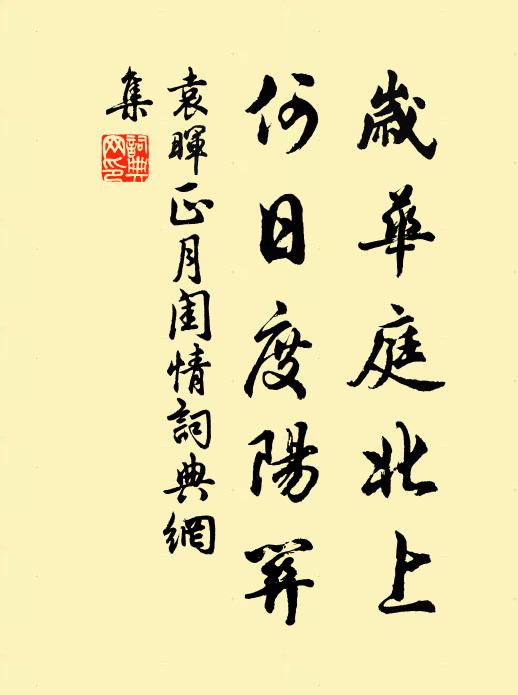 歲華庭北上
何日度陽關
袁暉正月閨情詞典網
集
詞典網印